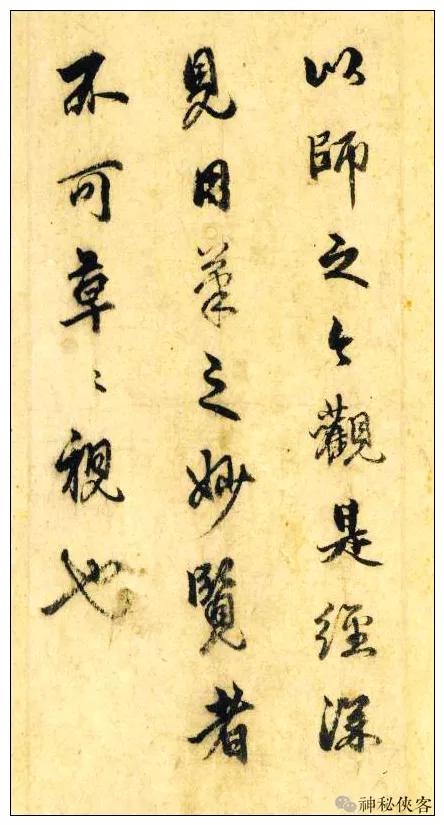 以師之今觀是經深
見用筆之妙覽者
不可草〻視也
神秘俠客